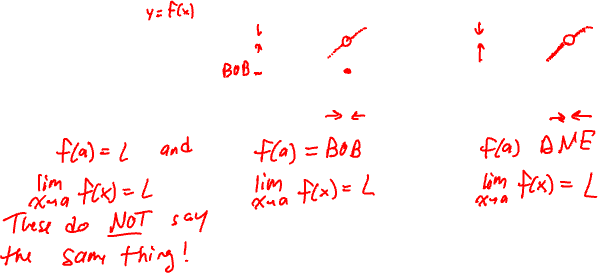 y = f(x)
BOB
f(a) = L and
lim f(x) = L
x→a
These do NOT say
the same thing!
f(a) = BOB
lim f(x) = L
x→a
f(a) DNE
lim f(x) = L
x→a